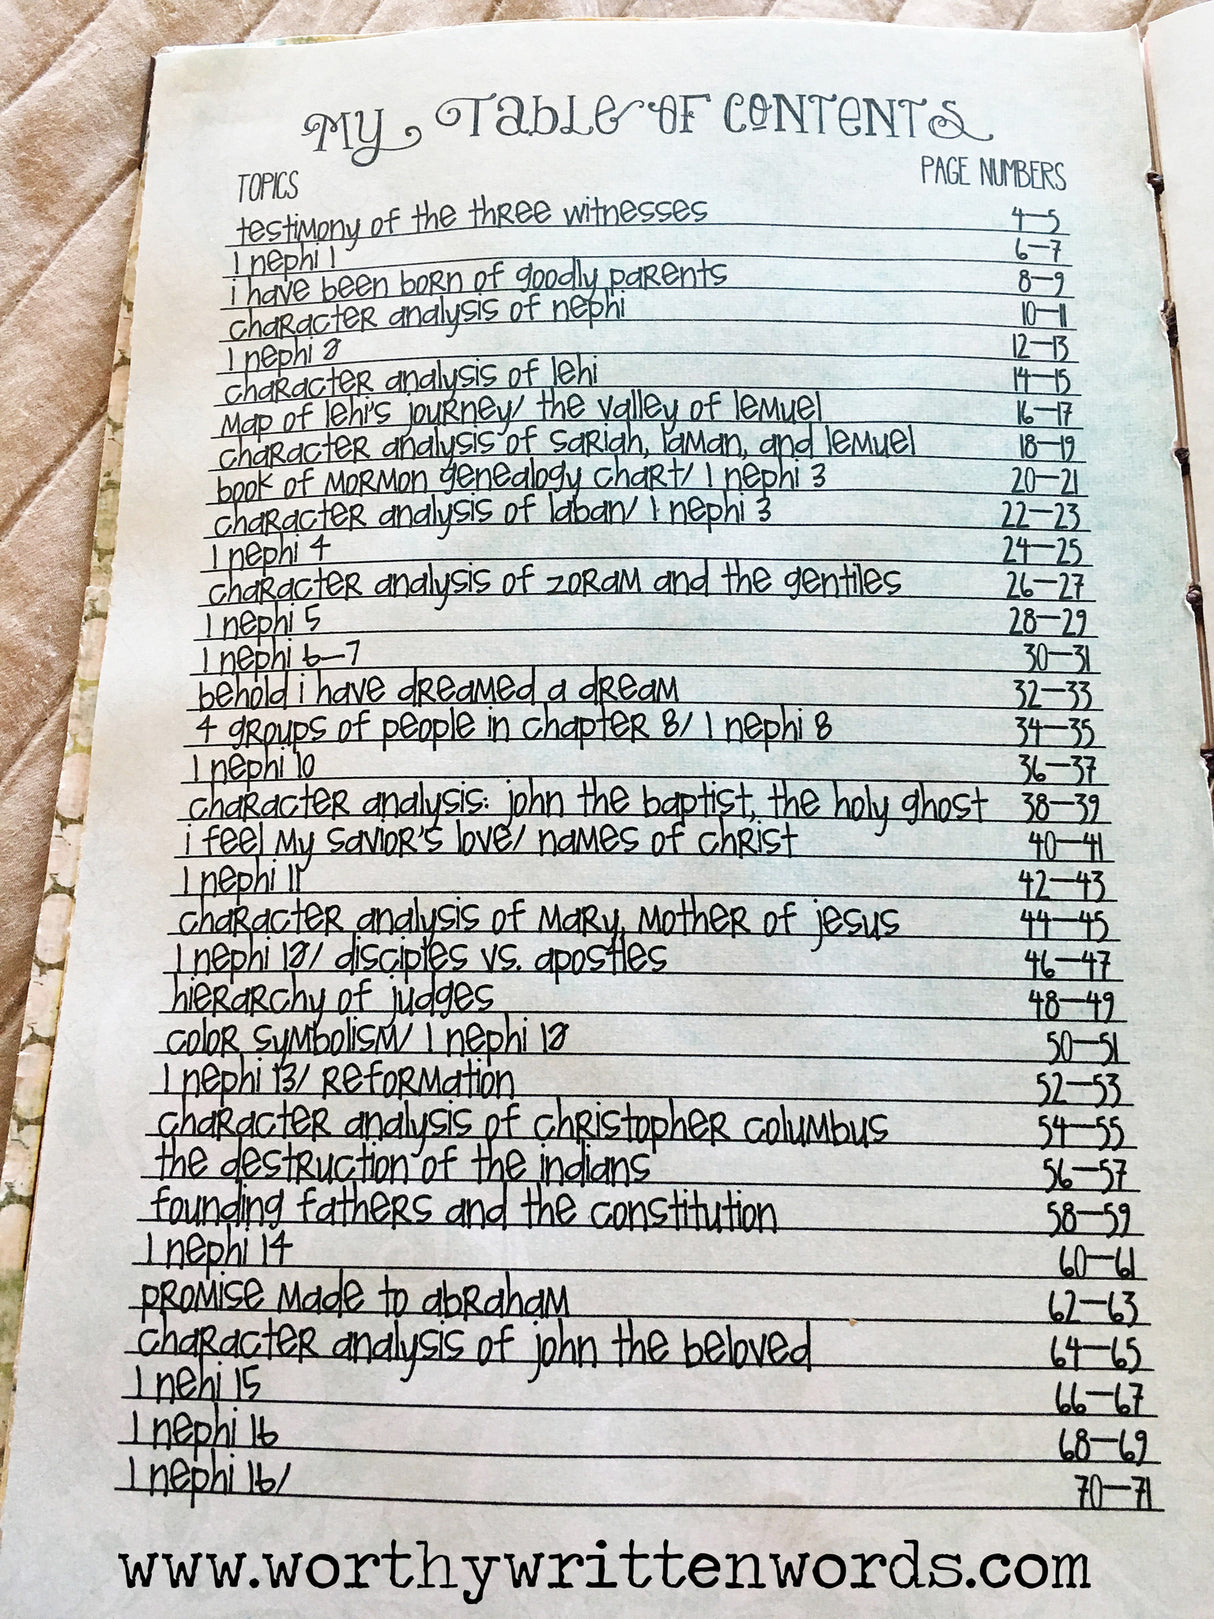 My Table of Contents
TOPICS PAGE NUMBERS
testimony of the three witnesses 4-5
1 nephi 1 6-7
i have been born of goodly parents 8-9
character analysis of nephi 10-11
1 nephi 2 12-13
character analysis of lehi 14-15
map of lehi's journey/ the valley of lemuel 16-17
character analysis of sariah, laman, and lemuel 18-19
book of mormon genealogy chart/ 1 nephi 3 20-21
character analysis of laban/ 1 nephi 3 22-23
1 nephi 4 24-25
character analysis of zoram and the gentiles 26-27
1 nephi 5 28-29
1 nephi 6-7 30-31
behold i have dreamed a dream 32-33
4 groups of people in chapter 8/ 1 nephi 8 34-35
1 nephi 10 36-37
character analysis: john the baptist, the holy ghost 38-39
i feel my savior's love/ names of christ 40-41
1 nephi 11 42-43
character analysis of mary, mother of jesus 44-45
1 nephi 12/ disciples vs. apostles 46-47
hierarchy of judges 48-49
color symbolism/ 1 nephi 12 50-51
1 nephi 13/ reformation 52-53
character analysis of christopher columbus 54-55
the destruction of the indians 56-57
founding fathers and the constitution 58-59
1 nephi 14 60-61
promise made to abraham 62-63
character analysis of john the beloved 64-65
1 nehi 15 66-67
1 nephi 16 68-69
1 nephi 16/ 70-71
www.worthywrittenwords.com